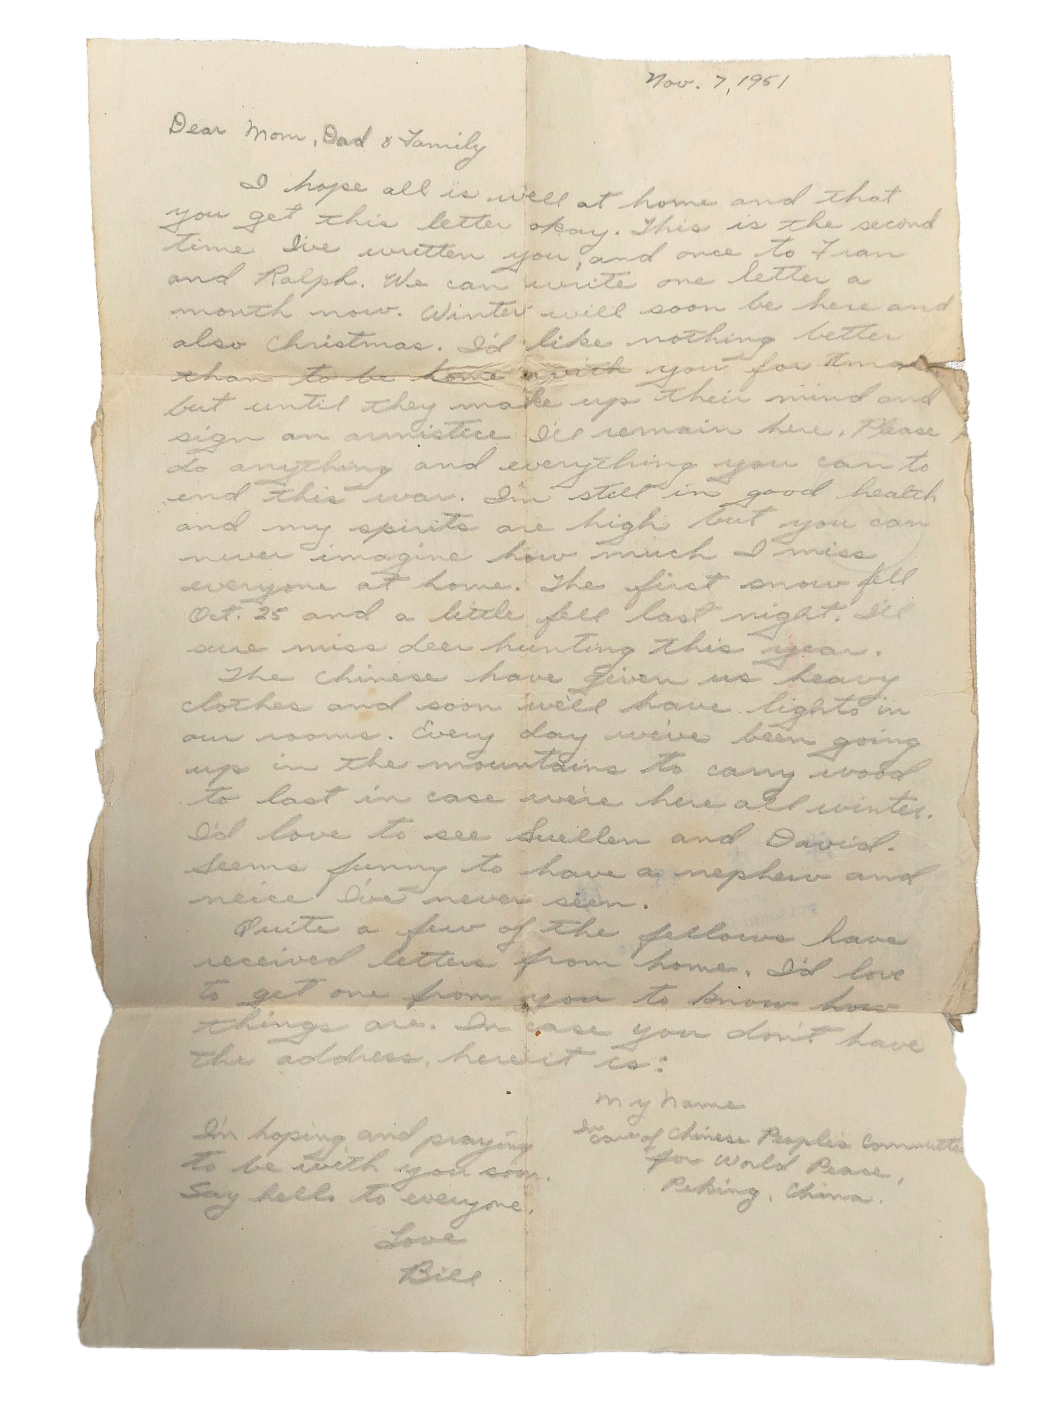 Nov. 7, 1951
Dear Mom, Dad & Family
I hope all is well at home and that
you get this letter okay. This is the second
time I've written you, and once to Fran
and Ralph. We can write one letter a
month now. Winter will soon be here and
also Christmas. I'd like nothing better
than to be home with you for Xmas
but until they make up their mind and
sign an armistice I'll remain here. Please
do anything and everything you can to
end this war. I'm still in good health
and my spirits are high but you can
never imagine how much I miss
everyone at home. The first snow fell
Oct. 25 and a little fell last night. I'll
sure miss deer hunting this year.
The Chinese have given us heavy
clothes and soon we'll have lights in
our rooms. Every day we've been going
up in the mountains to carry wood
to last in case we're here all winter.
I'd love to see Suellen and David.
Seems funny to have a nephew and
neice I've never seen.
Quite a few of the fellows have
received letters from home. I'd love
to get one from you to know how
things are. In case you don't have
the address, here it is:
My Name
In care of Chinese People's Committee
for World Peace,
Peking, China.
I'm hoping and praying
to be with you soon.
Say hello to everyone.
Love
Bill